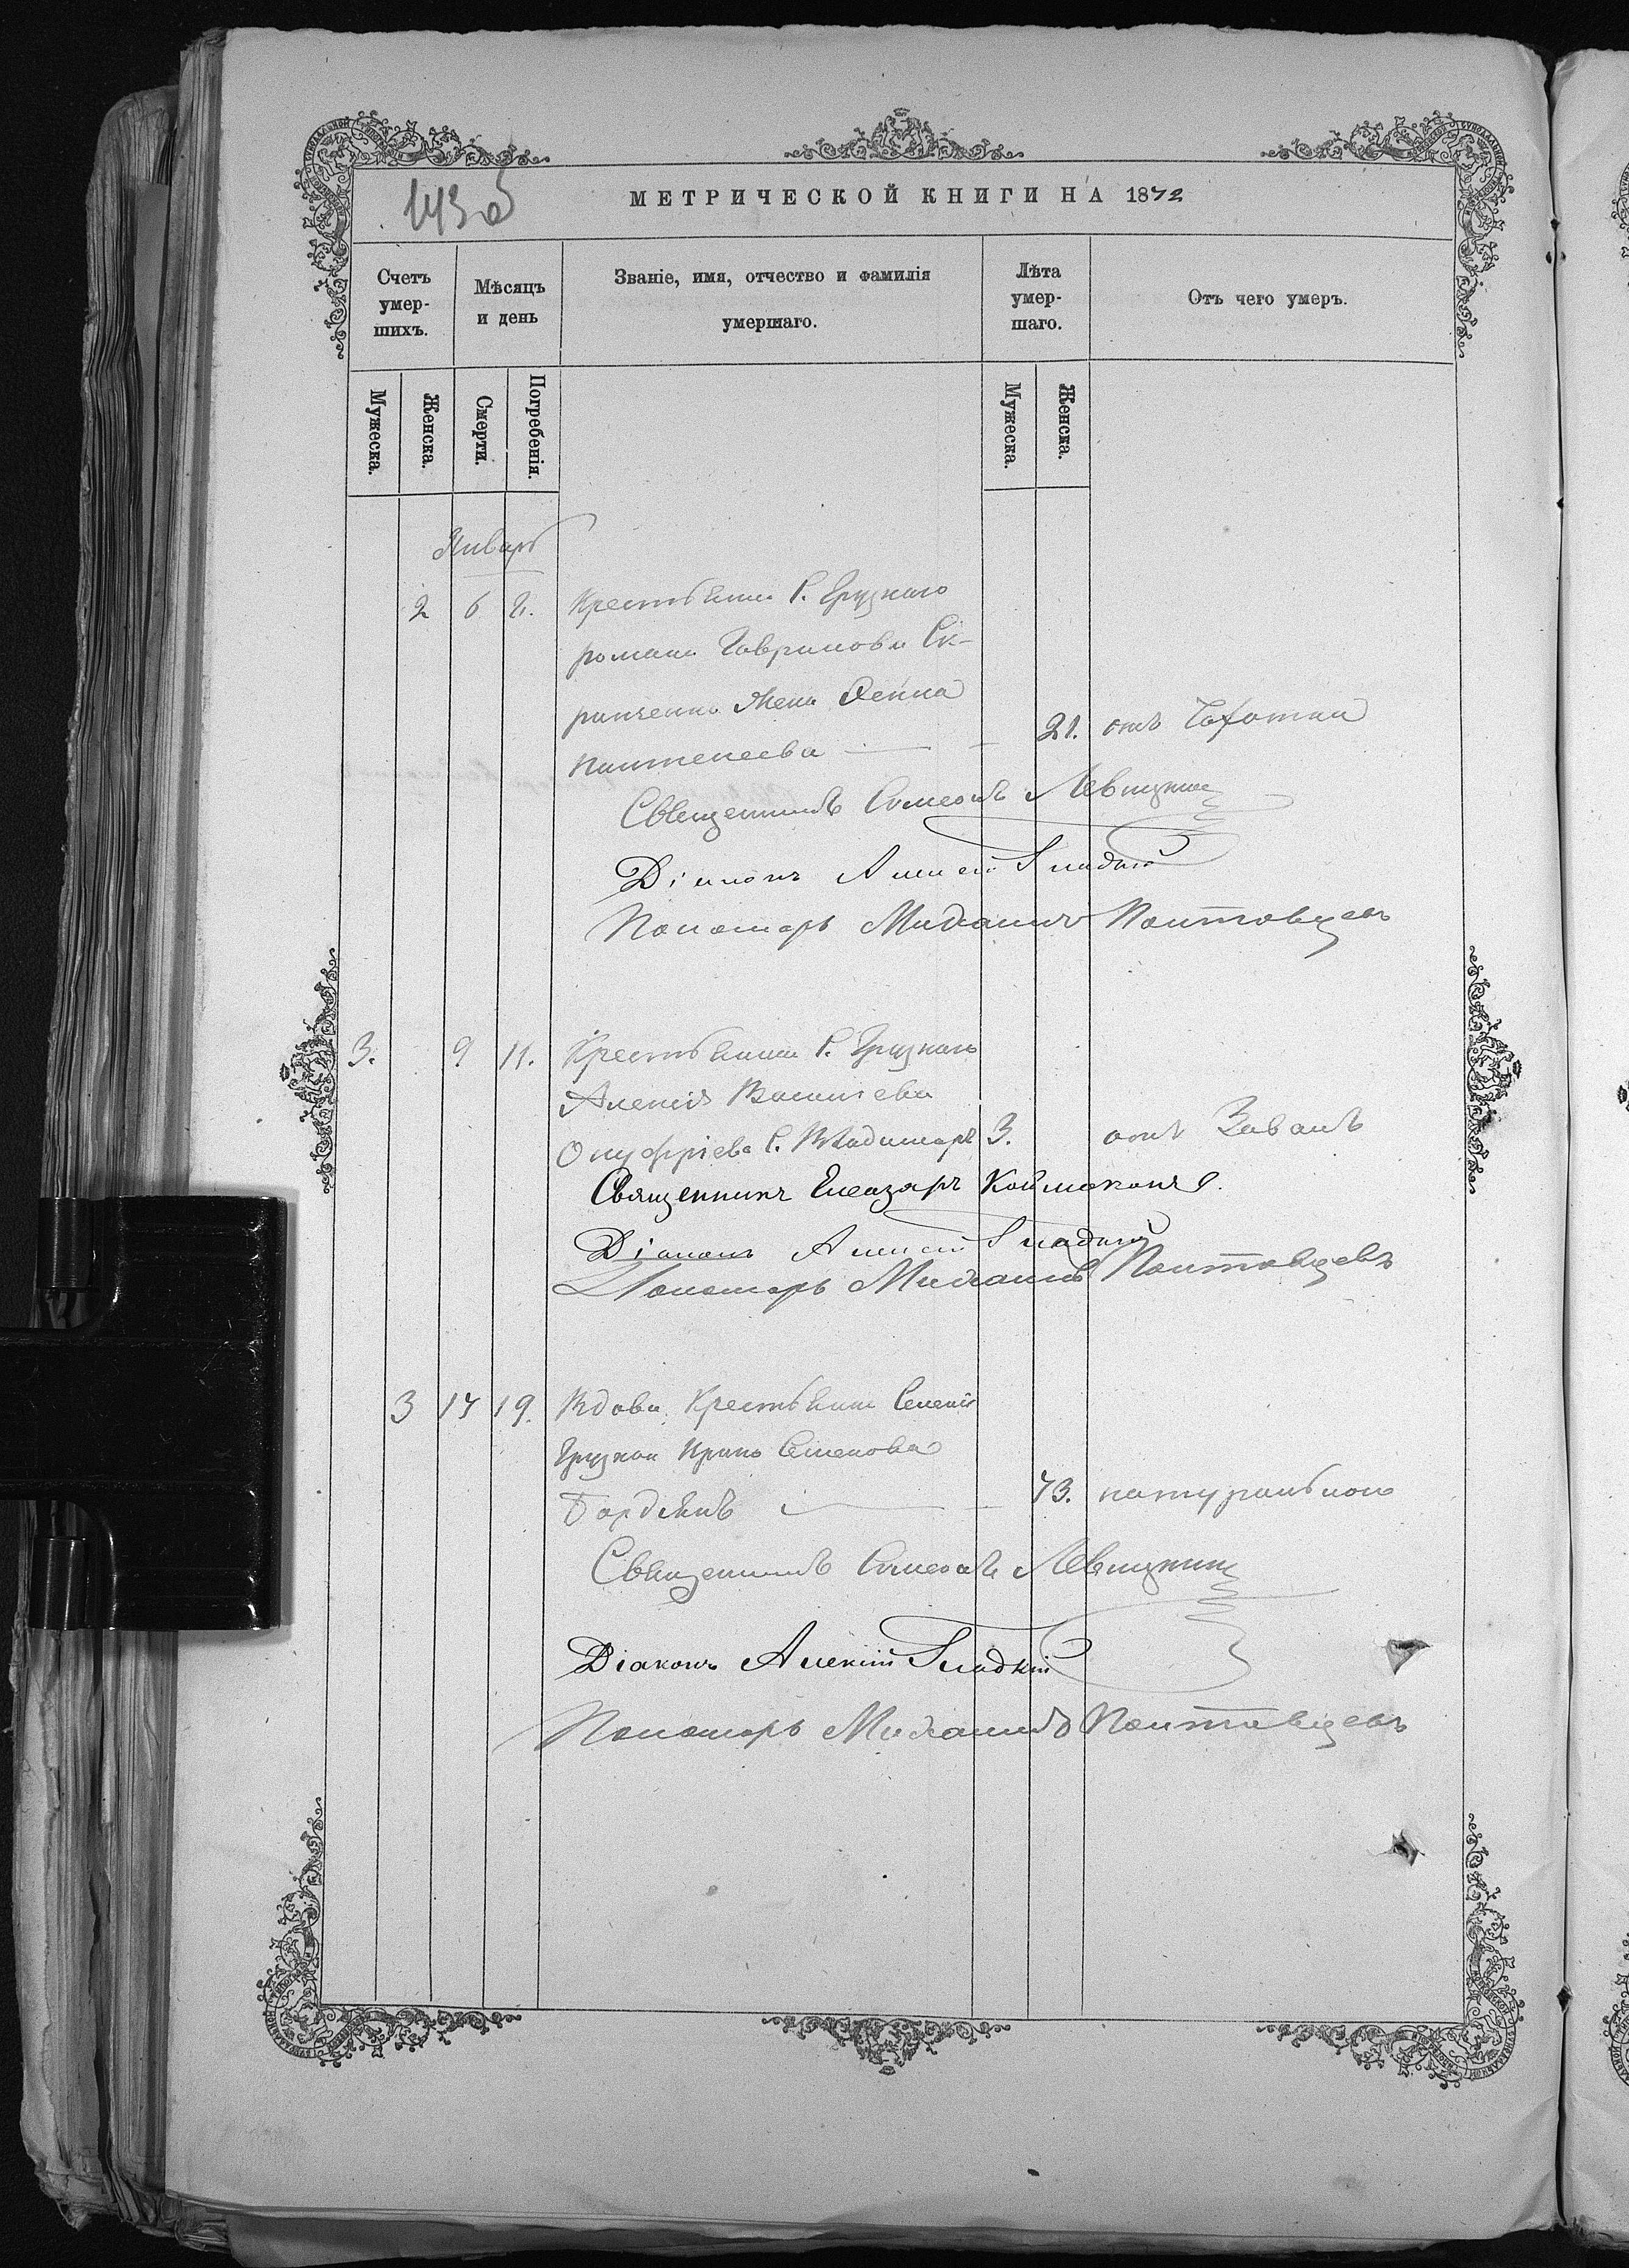 143 об
МЕТРИЧЕСКОЙ КНИГИ НА 1872
Счетъ умер-шихъ.
Мѣсяцъ и день
Званіе, имя, отчество и фамилія умершаго.
Лѣта умер-шаго.
Отъ чего умеръ.
Мужеска.
Женска.
Смерти.
Погребенія.
Мужеска.
Женска.
Январь
2 6 Крестьянина С. Грузкаго
романа Гаврилова Ск-
жена
21. отъ Чахотки
Священникъ Симеонъ Левицкій
Діаконъ Алексій Гладкій
Пономарь Михаилъ Полтавцевъ
3. 9 11. Крестьянина С. Грузкаго
Алексія Васильева
Онуфріева С. Владимиръ 3.
Священникъ Елеазаръ
Діаконъ Алексій Гладкій
Пономарь Михаилъ Полтавцевъ
3 17 19. Вдова Крестьянина Селенія
Грузкой Ирина Семенова
73. натурально
Священникъ Симеонъ Левицкій
Діаконъ Алексій Гладкій
Пономарь Михаилъ Полтавцевъ